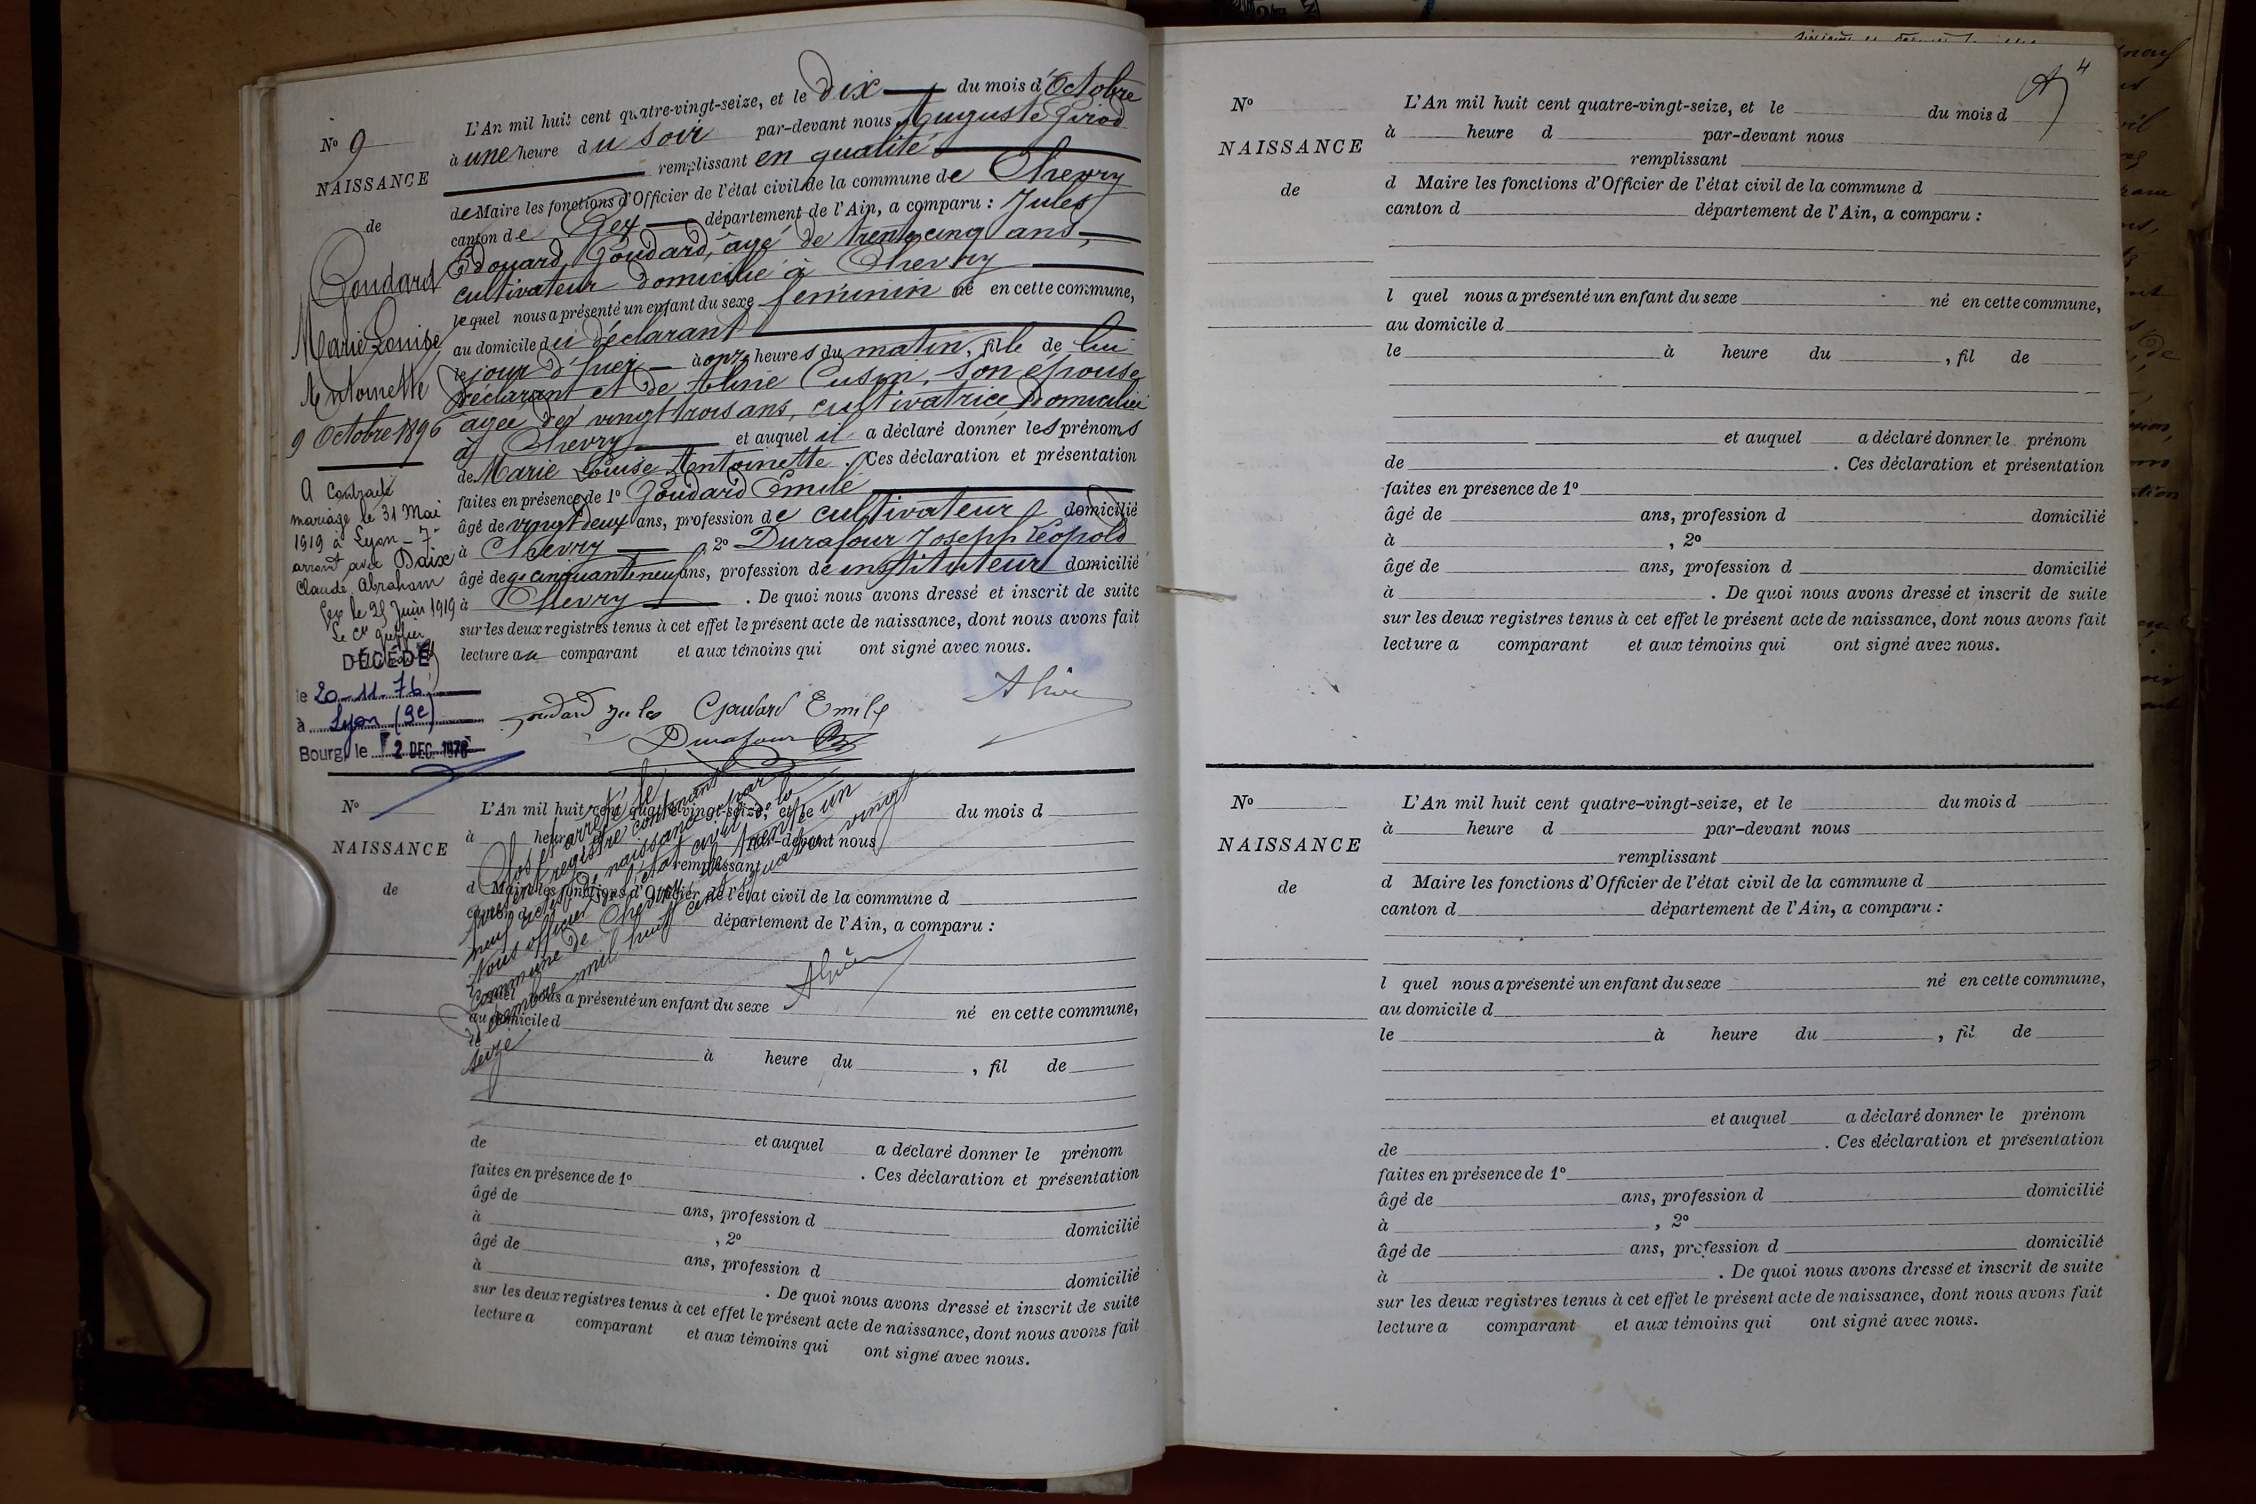 No 9
NAISSANCE
de
Goudard
Marie Louise
Antoinette
9 Octobre 1896
A contracté
mariage le 31 Mai
1919 à Lyon - 7e
arront avec Daix
Claude Abraham
Gex le 25 Juin 1919
Le cis greffier
DÉCÉDÉ
le 20-11-76
à Lyon (9e)
Bourg, le 2 DEC. 1976
L'An mil huit cent quatre-vingt-seize, et le dix du mois d'Octobre
à une heure du soir par-devant nous Auguste Girod
remplissant en qualité
de Maire les fonctions d'Officier de l'état civil de la commune de Chevry
canton de Gex département de l'Ain, a comparu : Jules
Edouard Goudard, âgé de trente cinq ans,
cultivateur domicilié à Chevry
lequel nous a présenté un enfant du sexe féminin né en cette commune,
au domicile du déclarant
le jour d'hier à onze heures du matin, fille de lui
déclarant et de Aline Cusin, son épouse
âgée de vingt trois ans, cultivatrice, domiciliée
à Chevry et auquel il a déclaré donner les prénoms
de Marie Louise Antoinette. Ces déclaration et présentation
faites en présence de 1º Goudard Emile
âgé de vingt deux ans, profession de cultivateur domicilié
à Chevry, 2º Durafour Joseph Léopold
âgé de cinquante neuf ans, profession de instituteur domicilié
à Chevry. De quoi nous avons dressé et inscrit de suite
sur les deux registres tenus à cet effet le présent acte de naissance, dont nous avons fait
lecture au comparant et aux témoins qui ont signé avec nous.
Goudard Jules Goudard Emile
Durafour
No
NAISSANCE
de
L'An mil huit cent quatre-vingt-seize, et le du mois d
à heure d par-devant nous
remplissant
d Maire les fonctions d'Officier de l'état civil de la commune d
canton d département de l'Ain, a comparu :
l quel nous a présenté un enfant du sexe né en cette commune,
au domicile d
le à heure du , fil de
et auquel a déclaré donner le prénom
de . Ces déclaration et présentation
faites en présence de 1º
âgé de ans, profession d domicilié
à , 2º
âgé de ans, profession d domicilié
à . De quoi nous avons dressé et inscrit de suite
sur les deux registres tenus à cet effet le présent acte de naissance, dont nous avons fait
lecture a comparant et aux témoins qui ont signé avec nous.
Clos et arrêté le
présent registre contenant
neuf actes de naissance par
Nous officier de l'état civil de la
commune de Chevry, le trente un
décembre mil huit cent quatre vingt
seize
4
No
NAISSANCE
de
L'An mil huit cent quatre-vingt-seize, et le du mois d
à heure d par-devant nous
remplissant
d Maire les fonctions d'Officier de l'état civil de la commune d
canton d département de l'Ain, a comparu :
l quel nous a présenté un enfant du sexe né en cette commune,
au domicile d
le à heure du , fil de
et auquel a déclaré donner le prénom
de . Ces déclaration et présentation
faites en présence de 1º
âgé de ans, profession d domicilié
à , 2º
âgé de ans, profession d domicilié
à . De quoi nous avons dressé et inscrit de suite
sur les deux registres tenus à cet effet le présent acte de naissance, dont nous avons fait
lecture a comparant et aux témoins qui ont signé avec nous.
No
NAISSANCE
de
L'An mil huit cent quatre-vingt-seize, et le du mois d
à heure d par-devant nous
remplissant
d Maire les fonctions d'Officier de l'état civil de la commune d
canton d département de l'Ain, a comparu :
l quel nous a présenté un enfant du sexe né en cette commune,
au domicile d
le à heure du , fil de
et auquel a déclaré donner le prénom
de . Ces déclaration et présentation
faites en présence de 1º
âgé de ans, profession d domicilié
à , 2º
âgé de ans, profession d domicilié
à . De quoi nous avons dressé et inscrit de suite
sur les deux registres tenus à cet effet le présent acte de naissance, dont nous avons fait
lecture a comparant et aux témoins qui ont signé avec nous.